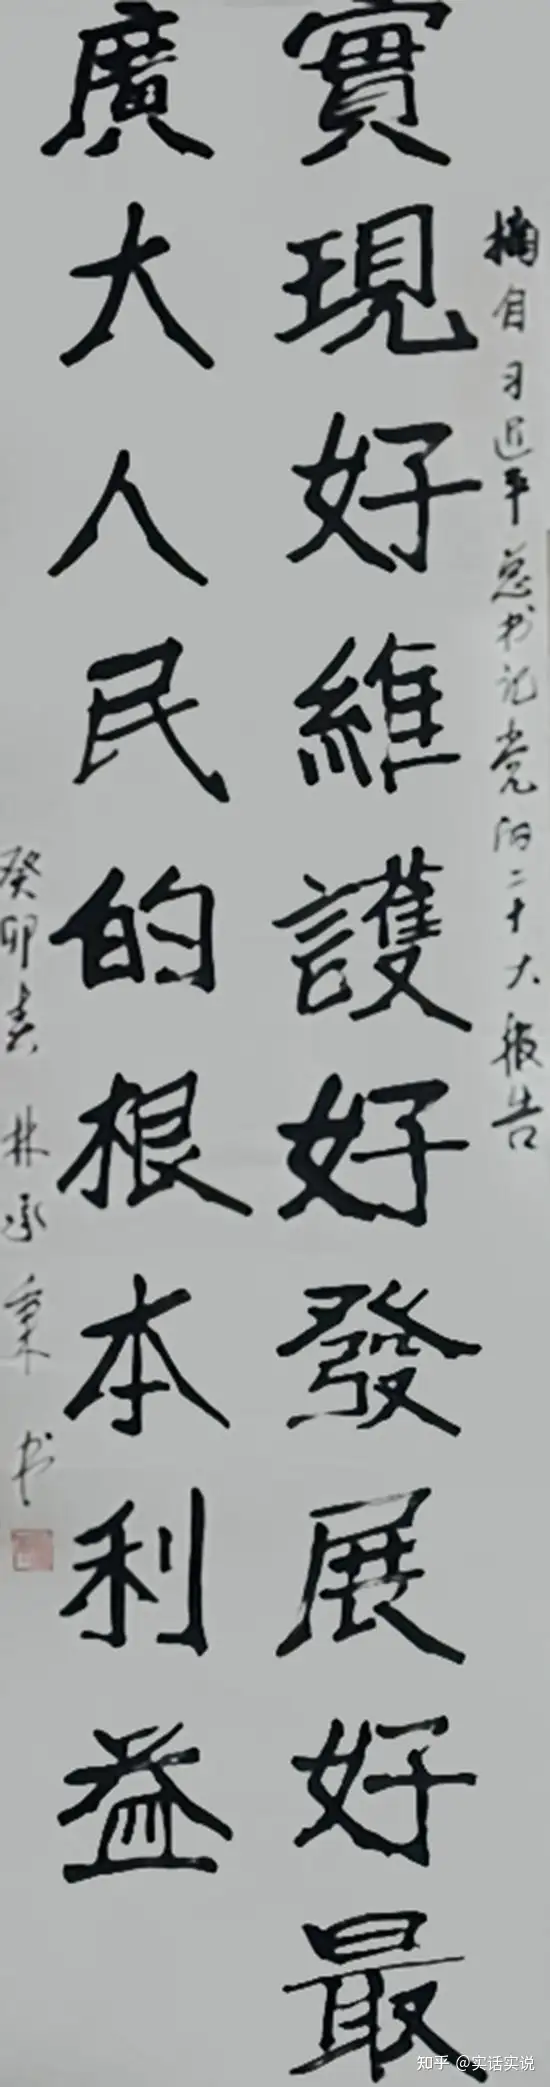 摘自习近平总书记党的二十大报告
實現好維護好發展好最
廣大人民的根本利益
癸卯春 林承秉书
知乎 @实话实说